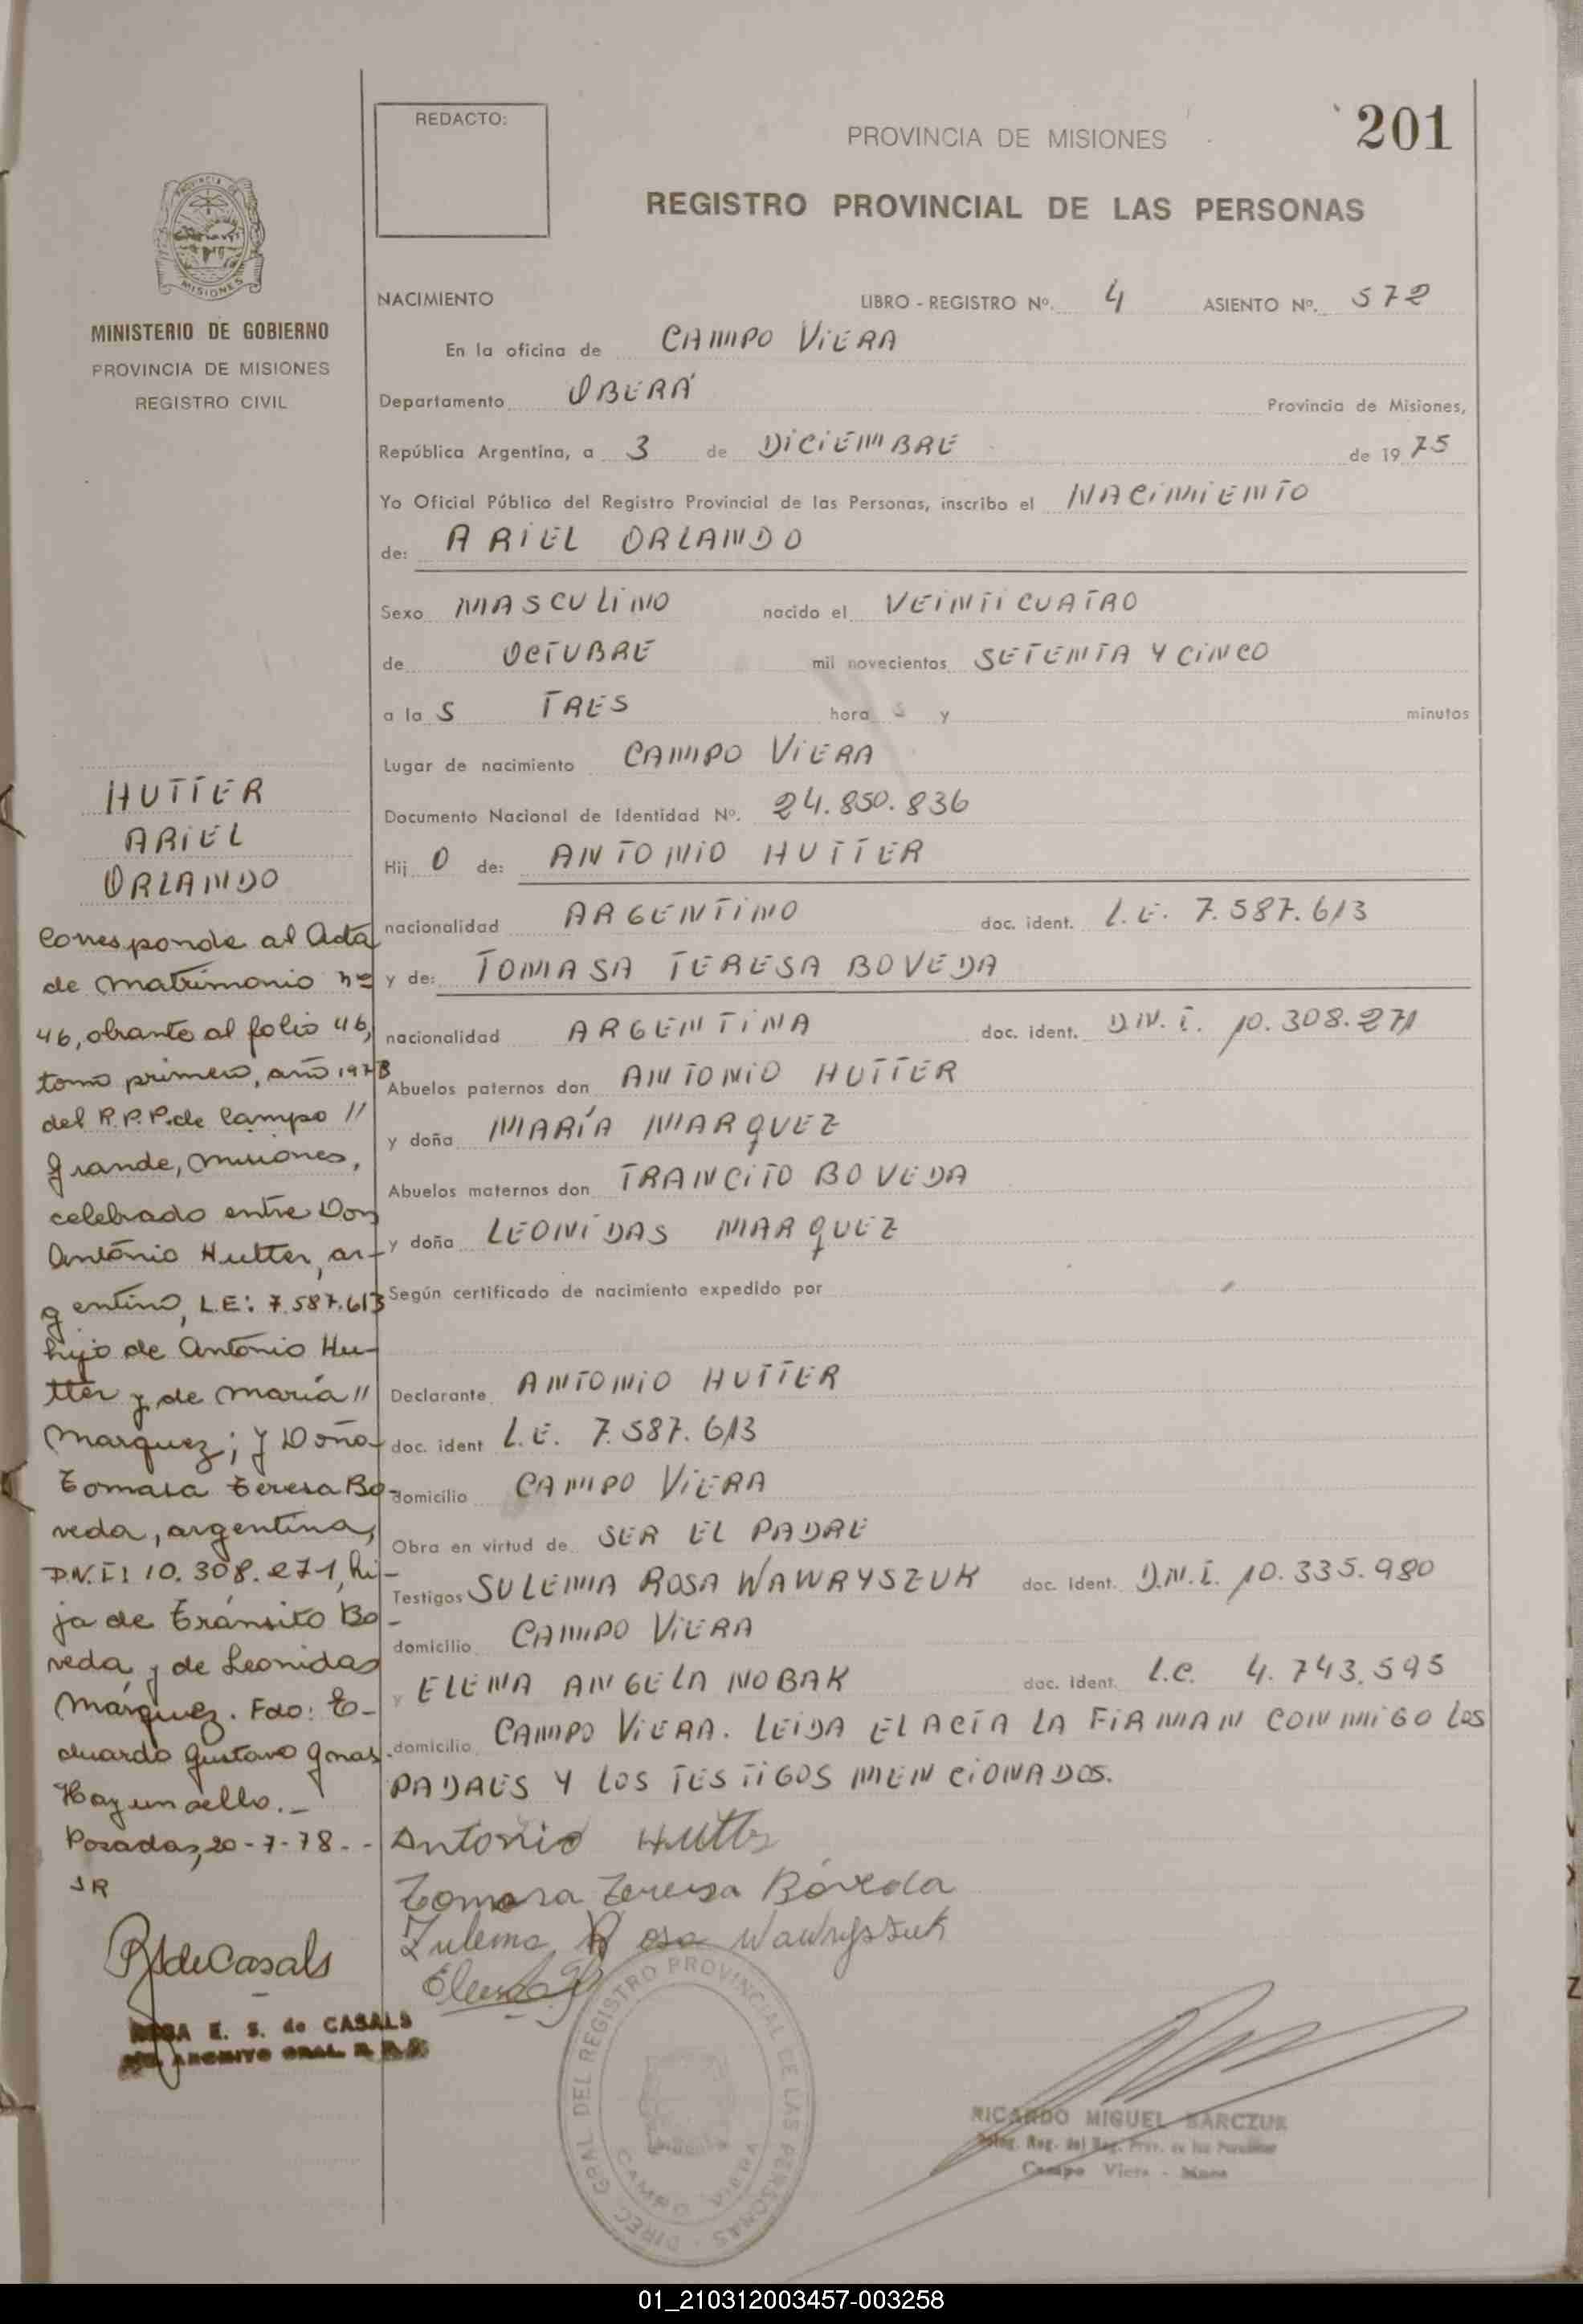 REDACTO:
PROVINCIA DE MISIONES
201
REGISTRO PROVINCIAL DE LAS PERSONAS
PROVINCIA DE
MISIONES
MINISTERIO DE GOBIERNO
PROVINCIA DE MISIONES
REGISTRO CIVIL
NACIMIENTO LIBRO - REGISTRO Nº. 4 ASIENTO Nº. 572
En la oficina de CAMPO VIERA
Departamento OBERÁ Provincia de Misiones,
República Argentina, a 3 de DICIEMBRE de 1975
Yo Oficial Público del Registro Provincial de las Personas, inscribo el NACIMIENTO
de: ARIEL ORLANDO
Sexo MASCULINO nacido el VEINTICUATRO
de OCTUBRE mil novecientos SETENTA Y CINCO
a la S TRES hora S y minutos
Lugar de nacimiento CAMPO VIERA
Documento Nacional de Identidad Nº. 24.850.836
Hij O de: ANTONIO HUTTER
nacionalidad ARGENTINO doc. ident. L.E. 7.587.613
y de: TOMASA TERESA BOVEDA
nacionalidad ARGENTINA doc. ident. D.N.I. 10.308.271
Abuelos paternos don ANTONIO HUTTER
y doña MARÍA MARQUEZ
Abuelos maternos don TRANCITO BOVEDA
y doña LEONIDAS MARQUEZ
Según certificado de nacimiento expedido por
Declarante ANTONIO HUTTER
doc. ident L.E. 7.587.613
domicilio CAMPO VIERA
Obra en virtud de SER EL PADRE
Testigos SULEMA ROSA WAWRYSZUK doc. Ident. D.N.I. 10.335.980
domicilio CAMPO VIERA
y ELENA ANGELA NOBAK doc. Ident. L.C. 4.743.595
domicilio CAMPO VIERA. LEIDA EL ACTA LA FIRMAN CONMIGO LOS
PADRES Y LOS TESTIGOS MENCIONADOS.
Antonio Hutter
Tomasa Teresa Bóveda
Zulema Rosa Wawryszuk
HUTTER
ARIEL
ORLANDO
Corresponde al Acta
de matrimonio nº
46, obrante al folio 46,
tomo primero, año 1978
del R.P.P. de Campo //
Grande, Misiones,
celebrado entre Don
Antonio Hutter, ar-
gentino, L.E: 7.587.613
hijo de Antonio Hu-
tter y de María //
Marquez; y Doña
Tomasa Teresa Bo-
veda, argentina,
D.N.I: 10.308.271, hi-
ja de Tránsito Bo-
veda y de Leonidas
Márquez. Fdo: E-
duardo Gustavo Gnas.
Hay un sello.-
Posadas, 20-7-78.-
JR
RSdeCasals
ROSA E. S. de CASALS
ARCHIVO GRAL. R. P. P.
DIREC. GRAL. DEL REGISTRO PROVINCIAL DE LAS PERSONAS
CAMPO VIERA
RICARDO MIGUEL BARCZUK
Deleg. Reg. del Reg. Prov. de las Personas
Campo Viera - Mnes
01_210312003457-003258